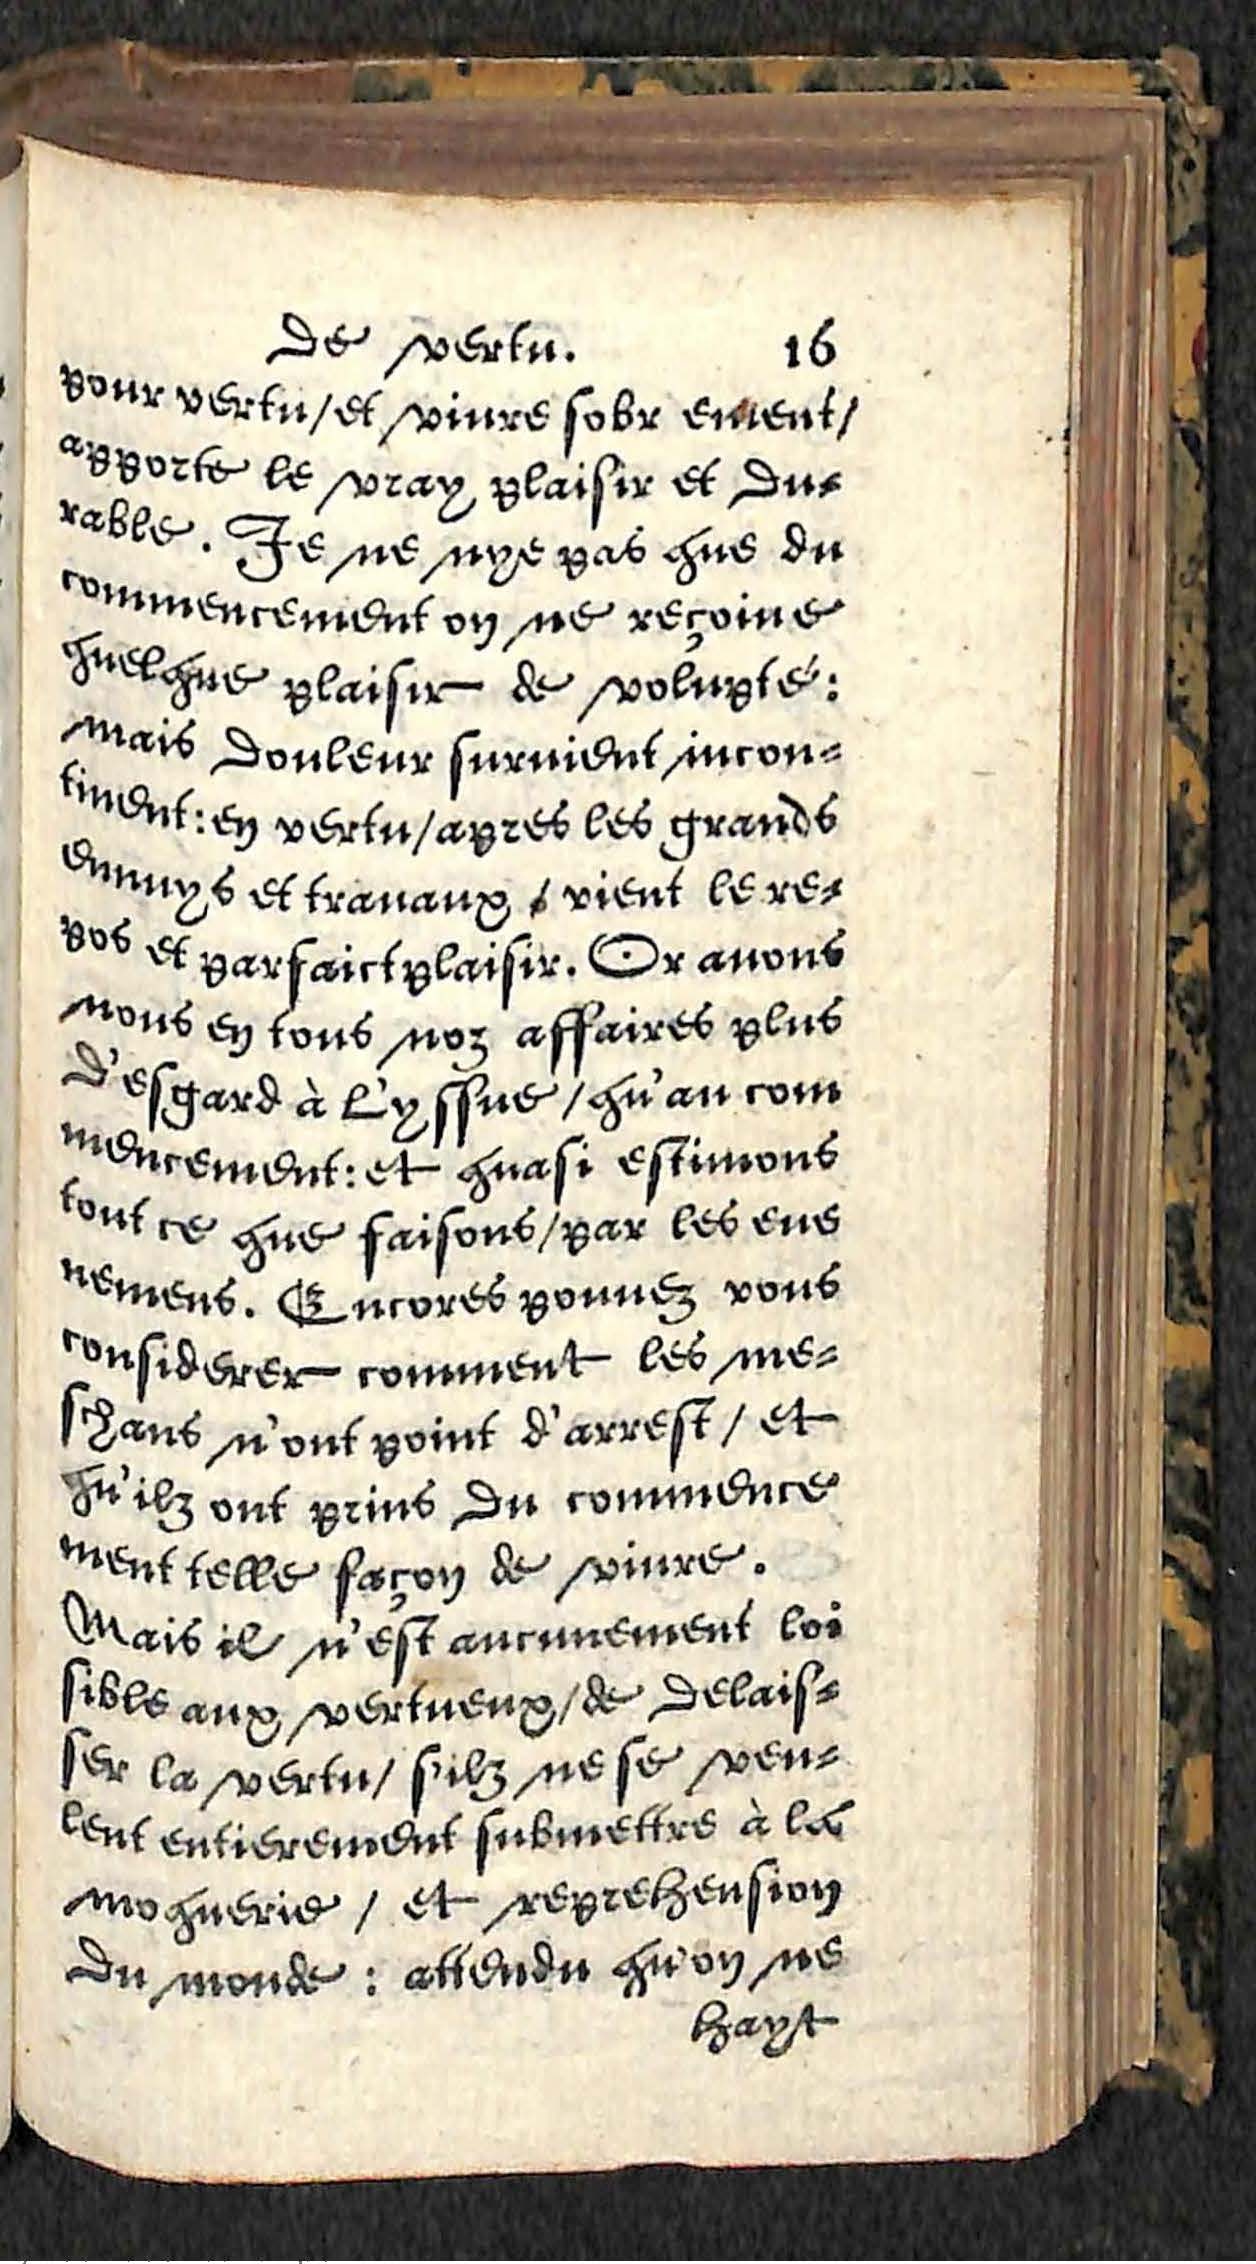 De vertu. 16
pour vertu/et viure sobr ement/
apporte le vray plaisir et du=
rable. Je ne nye pas que du
commencement on ne reçoiue
quelque plaisir de volupté:
mais douleur suruient incon=
tinent: en vertu/apres les grands
ennuys et trauaux / vient le re=
pos et parfaict plaisir. Or auons
nous en tous noz affaires plus
d'esgard à l'yssue/qu'au com
mencement: et quasi estimons
tout ce que faisons/par les eue
nemens. Encores pouuez vous
considerer comment les me=
schans n'ont point d'arrest/et
qu'ilz ont prins du commence
ment telle façon de viure.
Mais il n'est aucunement loi
sible aux vertueux/de delais=
ser la vertu/s'ilz ne se veu=
lent entierement submettre à la
moquerie/et reprehension
du monde: attendu qu'on ne
hayt